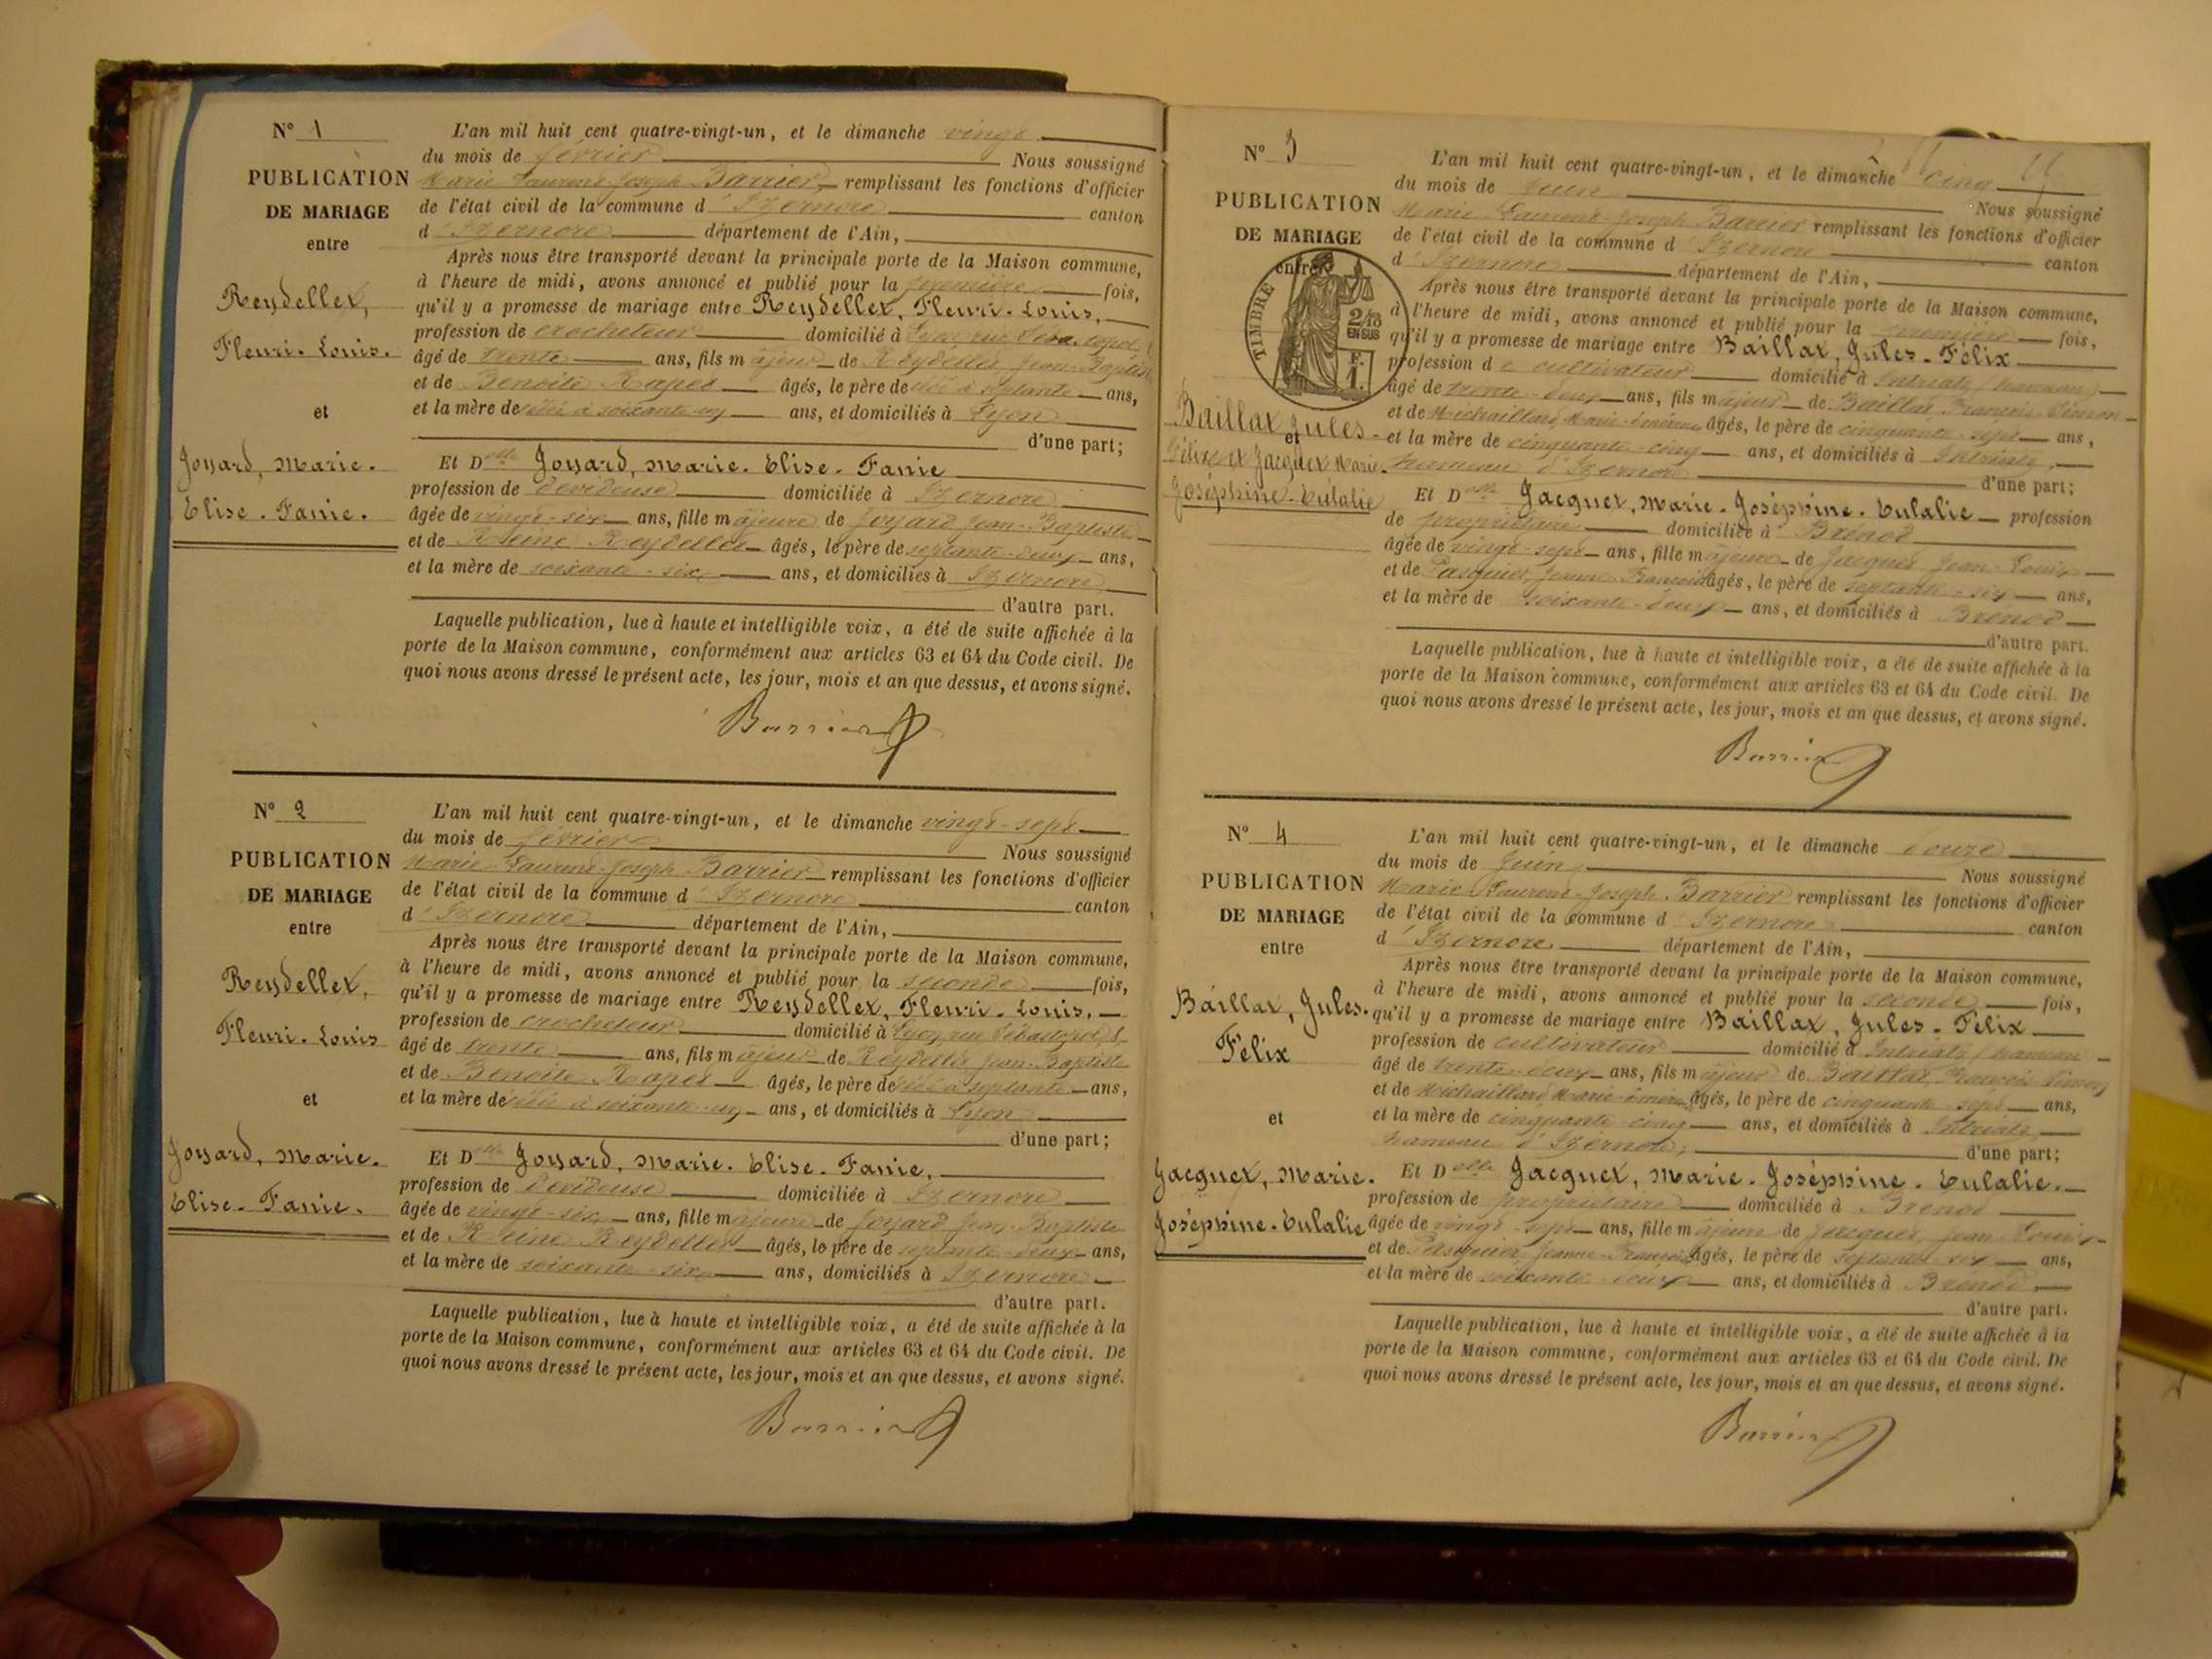 N° 1
PUBLICATION
DE MARIAGE
entre
Reydellet,
Fleuri-Louis.
et
Joyard, Marie.
Elise-Fanie.
L'an mil huit cent quatre-vingt-un, et le dimanche vingt
du mois de février Nous soussigné
Marie Laurent Joseph Barrier remplissant les fonctions d'officier
de l'état civil de la commune d'Izernore canton
d'Izernore département de l'Ain,
Après nous être transporté devant la principale porte de la Maison commune,
à l'heure de midi, avons annoncé et publié pour la première fois,
qu'il y a promesse de mariage entre Reydellet, Fleuri-Louis,
profession de crocheteur domicilié à Lyon, rue
âgé de trente ans, fils majeur de Reydellet Jean-Baptiste
et de Benoite Rapet âgés, le père de à septante ans,
et la mère de à soixante-un ans, et domiciliés à Lyon
d'une part;
Et Delle Joyard, Marie-Elise-Fanie
profession de dévideuse domiciliée à Izernore
âgée de vingt-six ans, fille majeure de Joyard Jean-Baptiste
et de Reine Reydellet âgés, le père de septante-deux ans,
et la mère de soixante-six ans, et domiciliés à Izernore
d'autre part.
Laquelle publication, lue à haute et intelligible voix, a été de suite affichée à la
porte de la Maison commune, conformément aux articles 63 et 64 du Code civil. De
quoi nous avons dressé le présent acte, les jour, mois et an que dessus, et avons signé.
Barrier
N° 2
PUBLICATION
DE MARIAGE
entre
Reydellet,
Fleuri-Louis
et
Joyard, Marie.
Elise-Fanie.
L'an mil huit cent quatre-vingt-un, et le dimanche vingt-sept
du mois de février Nous soussigné
Marie-Laurent-Joseph Barrier remplissant les fonctions d'officier
de l'état civil de la commune d'Izernore canton
d'Izernore département de l'Ain,
Après nous être transporté devant la principale porte de la Maison commune,
à l'heure de midi, avons annoncé et publié pour la seconde fois,
qu'il y a promesse de mariage entre Reydellet, Fleuri-Louis,
profession de crocheteur domicilié à Lyon, rue Sébastopol
âgé de trente ans, fils majeur de Reydellet Jean-Baptiste
et de Benoite Rapet âgés, le père de à septante ans,
et la mère de à soixante-un ans, et domiciliés à Lyon
d'une part;
Et Delle Joyard, Marie-Elise-Fanie,
profession de dévideuse domiciliée à Izernore
âgée de vingt-six ans, fille majeure de Joyard Jean-Baptiste
et de Reine Reydellet âgés, le père de septante-deux ans,
et la mère de soixante-six ans, domiciliés à Izernore
d'autre part.
Laquelle publication, lue à haute et intelligible voix, a été de suite affichée à la
porte de la Maison commune, conformément aux articles 63 et 64 du Code civil. De
quoi nous avons dressé le présent acte, les jour, mois et an que dessus, et avons signé.
Barrier
N° 3
PUBLICATION
DE MARIAGE
entre
TIMBRE
2/10
EN SUS
F.
1.
Baillat Jules-
et
Félix et Jacquet Marie-
Joséphine-Eulalie
L'an mil huit cent quatre-vingt-un, et le dimanche cinq
du mois de juin Nous soussigné
Marie-Laurent-Joseph Barrier remplissant les fonctions d'officier
de l'état civil de la commune d'Izernore canton
d'Izernore département de l'Ain,
Après nous être transporté devant la principale porte de la Maison commune,
à l'heure de midi, avons annoncé et publié pour la première fois,
qu'il y a promesse de mariage entre Baillat, Jules-Félix
profession de cultivateur domicilié à Intriat, hameau
âgé de trente-deux ans, fils majeur de Baillat François-Simon
et de Michaillard Marie âgés, le père de cinquante-sept ans,
et la mère de cinquante-cinq ans, et domiciliés à Intriat,
hameau d'Izernore d'une part;
Et Delle Jacquet, Marie-Joséphine-Eulalie profession
de propriétaire domiciliée à Brénod
âgée de vingt-sept ans, fille majeure de Jacquet Jean-Louis
et de Pasquier, Jeanne-Françoise âgés, le père de septante-six ans,
et la mère de soixante-deux ans, et domiciliés à Brénod
d'autre part.
Laquelle publication, lue à haute et intelligible voix, a été de suite affichée à la
porte de la Maison commune, conformément aux articles 63 et 64 du Code civil. De
quoi nous avons dressé le présent acte, les jour, mois et an que dessus, et avons signé.
Barrier
N° 4
PUBLICATION
DE MARIAGE
entre
Baillat, Jules.
Félix
et
Jacquet, Marie.
Joséphine-Eulalie
L'an mil huit cent quatre-vingt-un, et le dimanche douze
du mois de juin Nous soussigné
Marie-Laurent-Joseph Barrier remplissant les fonctions d'officier
de l'état civil de la commune d'Izernore canton
d'Izernore département de l'Ain,
Après nous être transporté devant la principale porte de la Maison commune,
à l'heure de midi, avons annoncé et publié pour la seconde fois,
qu'il y a promesse de mariage entre Baillat, Jules-Félix
profession de cultivateur domicilié à Intriat, hameau
âgé de trente-deux ans, fils majeur de Baillat, François-Simon
et de Michaillard Marie âgés, le père de cinquante-sept ans,
et la mère de cinquante-cinq ans, et domiciliés à Intriat,
hameau d'Izernore, d'une part;
Et Delle Jacquet, Marie-Joséphine-Eulalie.
profession de propriétaire domiciliée à Brénod
âgée de vingt-sept ans, fille majeure de Jacquet Jean-Louis
et de Pasquier Jeanne-Françoise âgés, le père de septante-six ans,
et la mère de soixante-deux ans, et domiciliés à Brénod
d'autre part.
Laquelle publication, lue à haute et intelligible voix, a été de suite affichée à la
porte de la Maison commune, conformément aux articles 63 et 64 du Code civil. De
quoi nous avons dressé le présent acte, les jour, mois et an que dessus, et avons signé.
Barrier